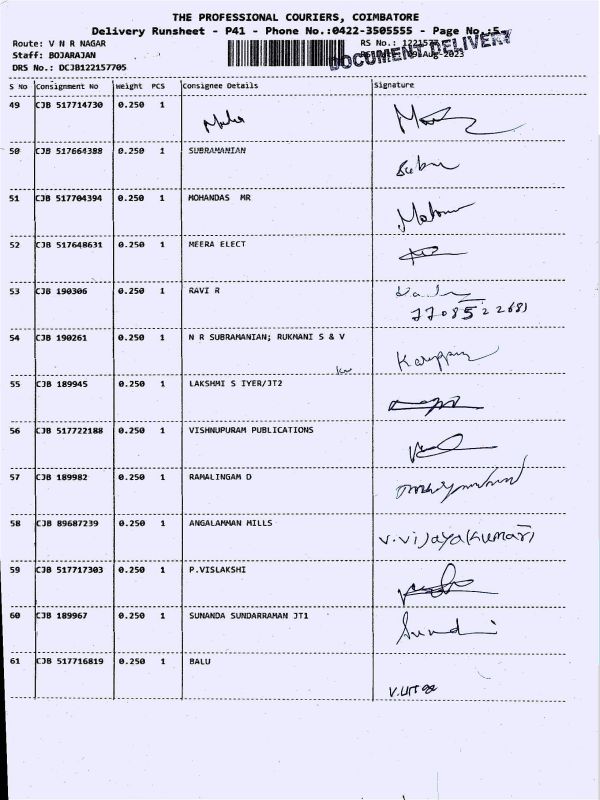 THE PROFESSIONAL COURIERS, COIMBATORE
Delivery Runsheet - P41 - Phone No.:0422-3505555 - Page No.:5
Route: V N R NAGAR RS No.:
Staff: BOJARAJAN 09-Aug-2023
DOCUMENT DELIVERY
DRS No.: DCJB122157705
S No Consignment No Weight PCS Consignee Details Signature
49 CJB 517714730 0.250 1
50 CJB 517664388 0.250 1 SUBRAMANIAN Subu
51 CJB 517704394 0.250 1 MOHANDAS MR
52 CJB 517648631 0.250 1 MEERA ELECT
53 CJB 190306 0.250 1 RAVI R
7708522681
54 CJB 190261 0.250 1 N R SUBRAMANIAN; RUKMANI S & V
55 CJB 189945 0.250 1 LAKSHMI S IYER/JT2
56 CJB 517722188 0.250 1 VISHNUPURAM PUBLICATIONS
57 CJB 189982 0.250 1 RAMALINGAM D
58 CJB 89687239 0.250 1 ANGALAMMAN MILLS V.Vijaya(kumar)
59 CJB 517717303 0.250 1 P.VISLAKSHI
60 CJB 189967 0.250 1 SUNANDA SUNDARRAMAN JT1
61 CJB 517716819 0.250 1 BALU